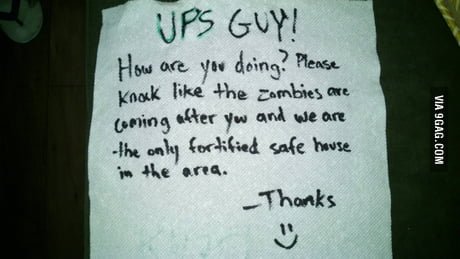 UPS GUY!
How are you doing? Please
knock like the zombies are
coming after you and we are
the only fortified safe house
in the area.
-Thanks
VIA 9GAG.COM